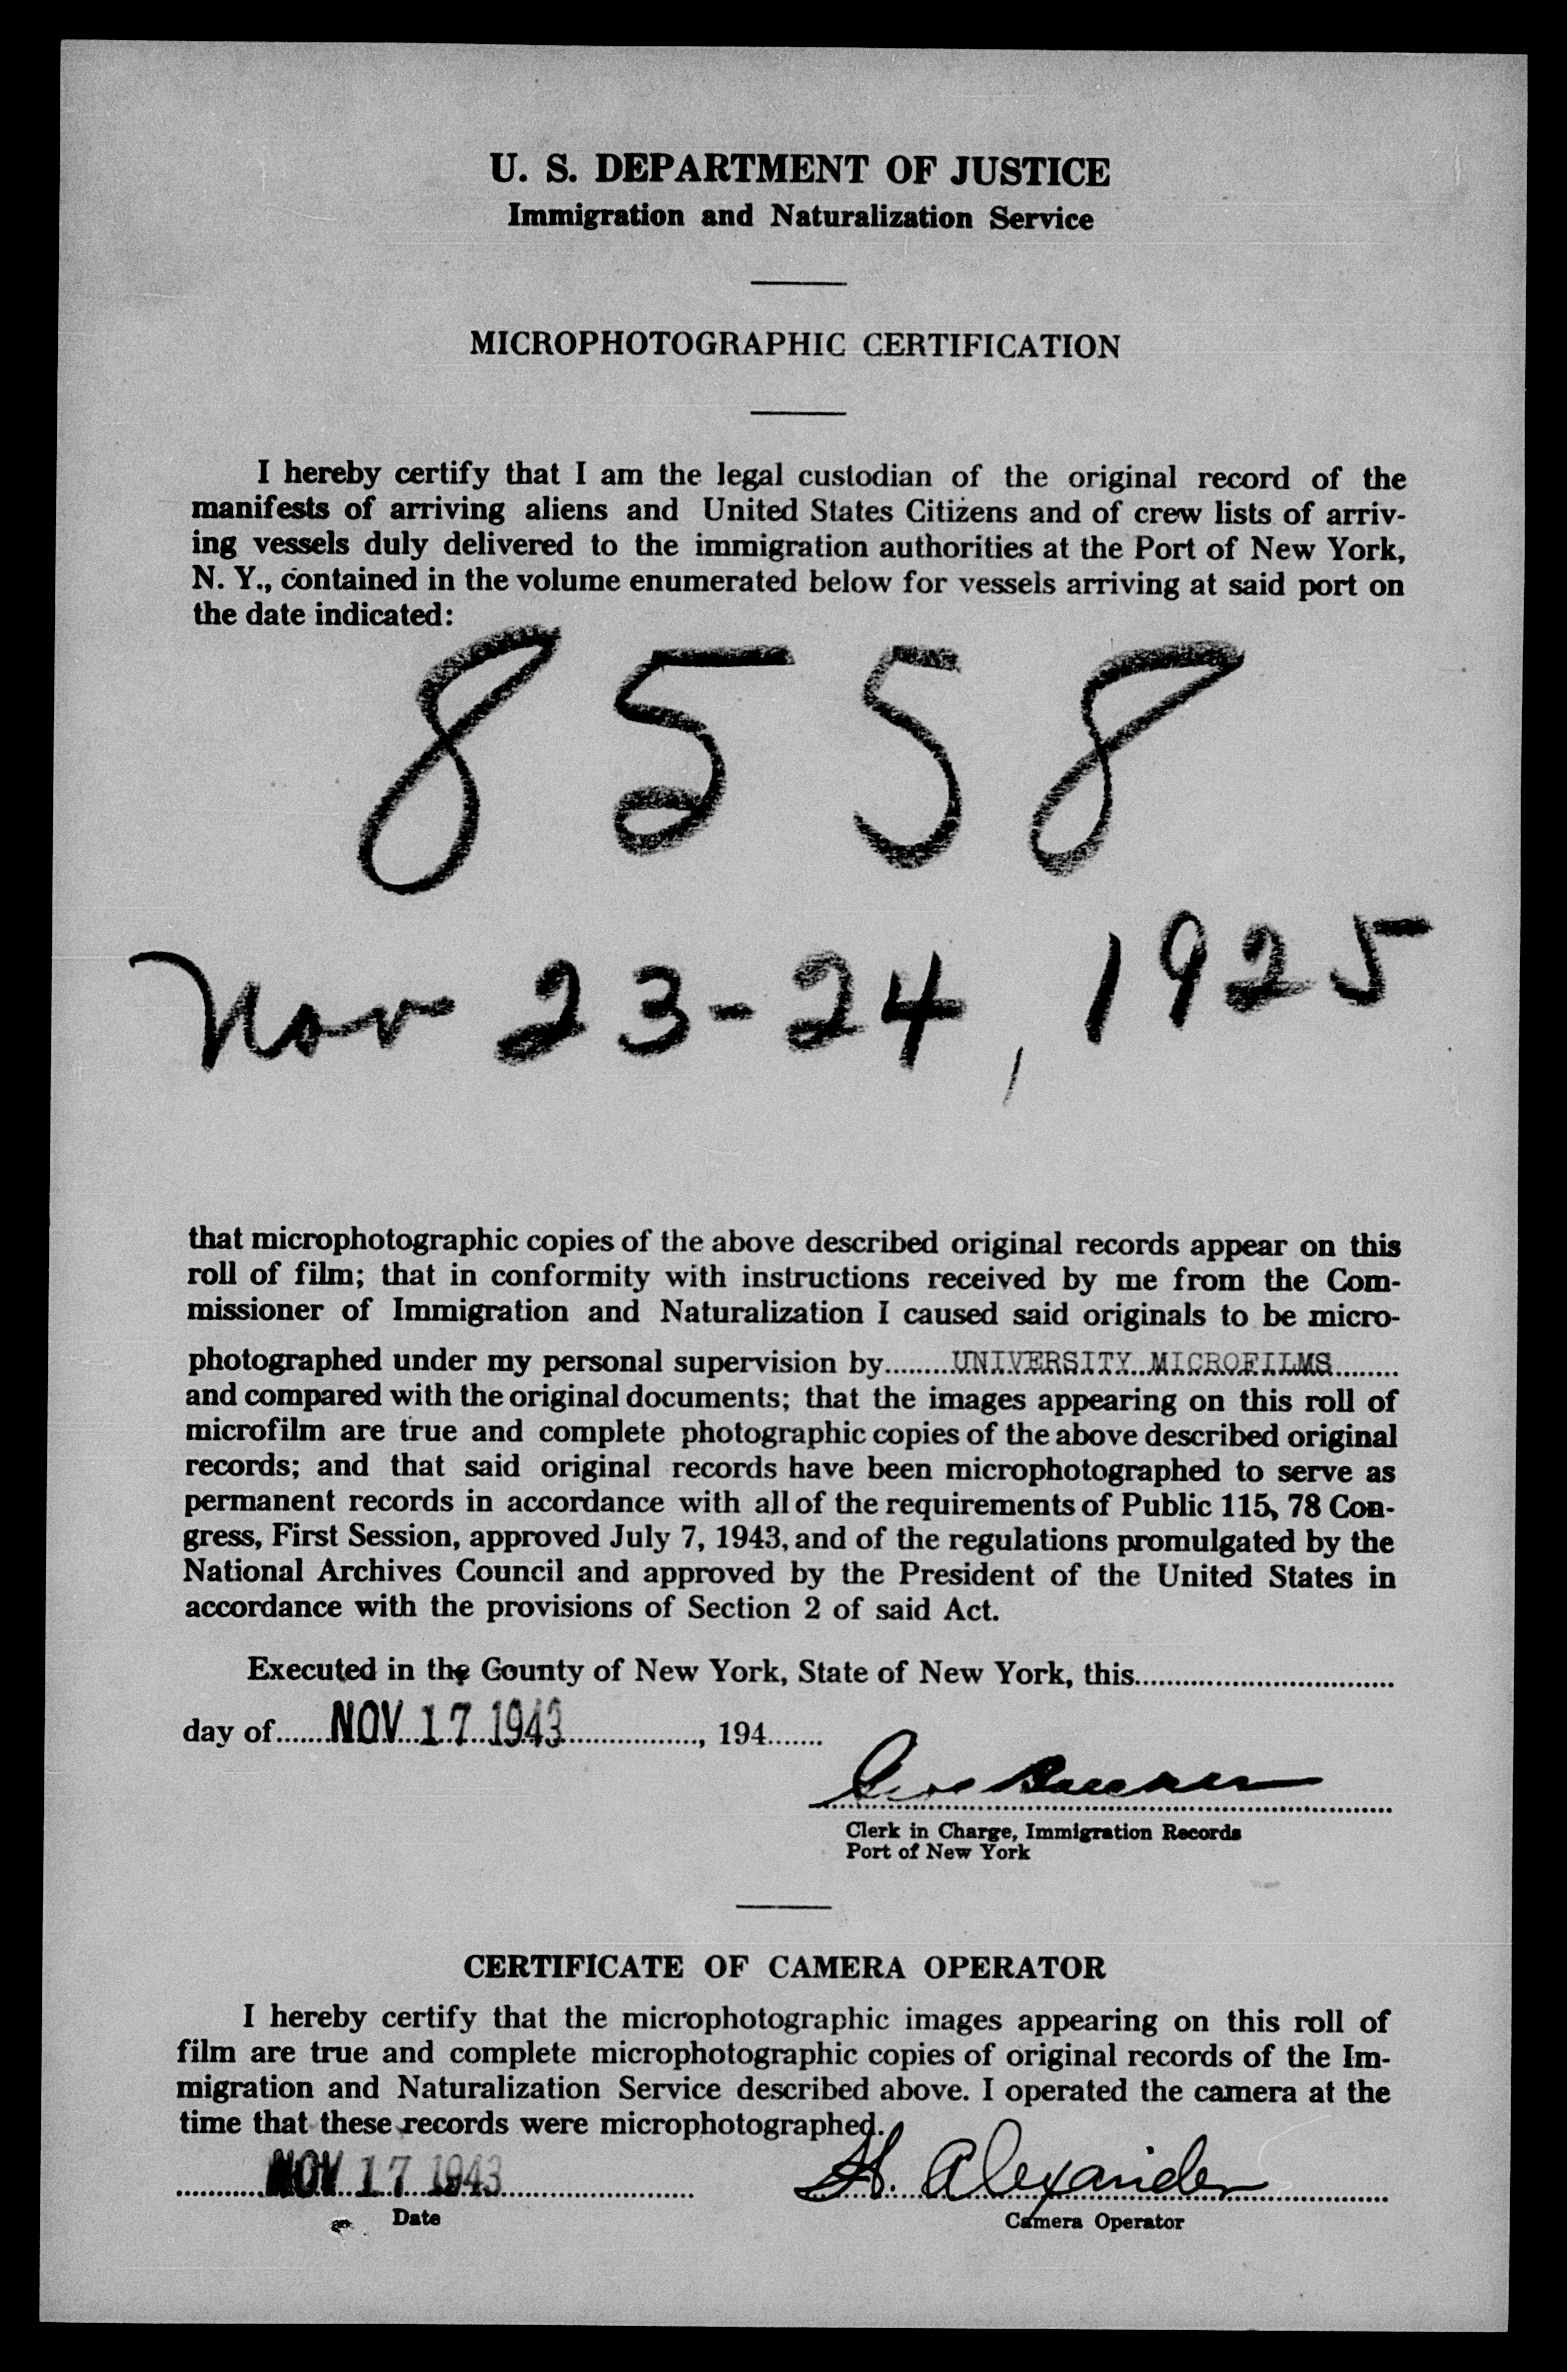 U. S. DEPARTMENT OF JUSTICE
Immigration and Naturalization Service
MICROPHOTOGRAPHIC CERTIFICATION
I hereby certify that I am the legal custodian of the original record of the
manifests of arriving aliens and United States Citizens and of crew lists of arriv-
ing vessels duly delivered to the immigration authorities at the Port of New York,
N. Y., contained in the volume enumerated below for vessels arriving at said port on
the date indicated:
8558
Nov 23-24, 1925
that microphotographic copies of the above described original records appear on this
roll of film; that in conformity with instructions received by me from the Com-
missioner of Immigration and Naturalization I caused said originals to be micro-
photographed under my personal supervision by........UNIVERSITY MICROFILMS........
and compared with the original documents; that the images appearing on this roll of
microfilm are true and complete photographic copies of the above described original
records; and that said original records have been microphotographed to serve as
permanent records in accordance with all of the requirements of Public 115, 78 Con-
gress, First Session, approved July 7, 1943, and of the regulations promulgated by the
National Archives Council and approved by the President of the United States in
accordance with the provisions of Section 2 of said Act.
Executed in the County of New York, State of New York, this................................
day of.......NOV 17 1943................., 194.......
Geo
Clerk in Charge, Immigration Records
Port of New York
CERTIFICATE OF CAMERA OPERATOR
I hereby certify that the microphotographic images appearing on this roll of
film are true and complete microphotographic copies of original records of the Im-
migration and Naturalization Service described above. I operated the camera at the
time that these records were microphotographed.
NOV 17 1943 H. Alexander
Date Camera Operator